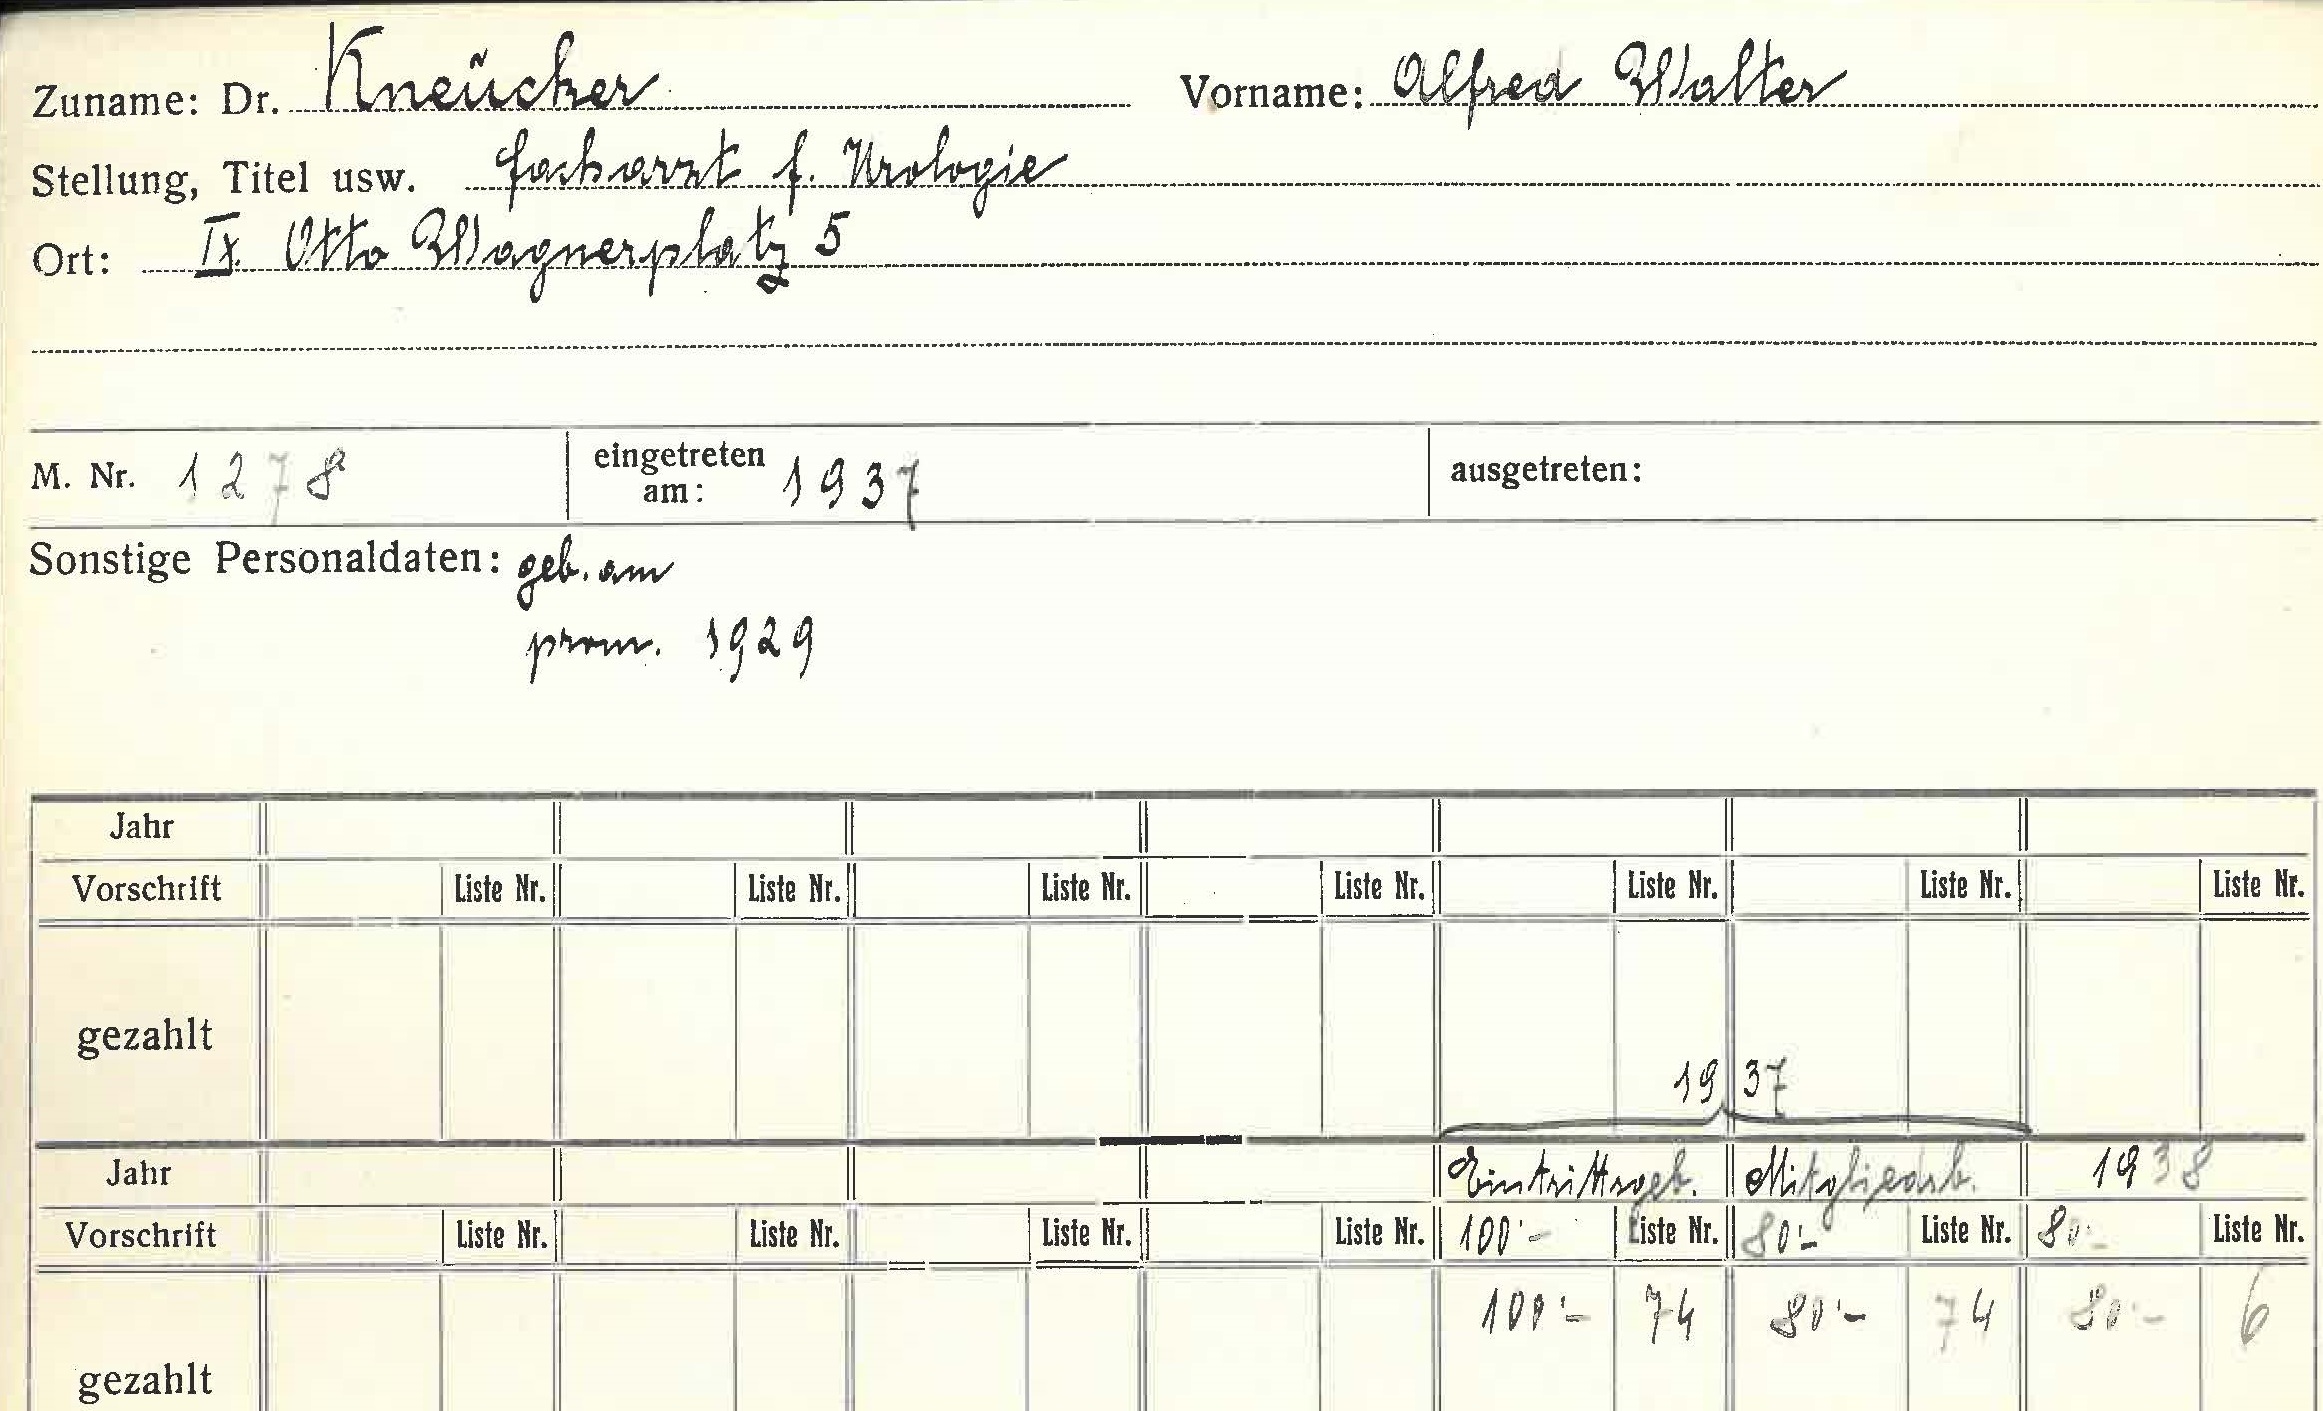 Zuname: Dr. Kneucker Vorname: Alfred Walter
Stellung, Titel usw. Facharzt f. Urologie
Ort: IX. Otto Wagnerplatz 5
M. Nr. 1278 eingetreten am: 1937 ausgetreten:
Sonstige Personaldaten: geb. am
prom. 1929
Jahr
Vorschrift Liste Nr. Liste Nr. Liste Nr. Liste Nr. Liste Nr. Liste Nr. Liste Nr.
gezahlt
1937
Jahr Eintrittsgeb. Mitgliedsb. 1938
Vorschrift Liste Nr. Liste Nr. Liste Nr. Liste Nr. 100'- Liste Nr. 80'- Liste Nr. 80'- Liste Nr.
100'- 74 80'- 74 80'- 6
gezahlt